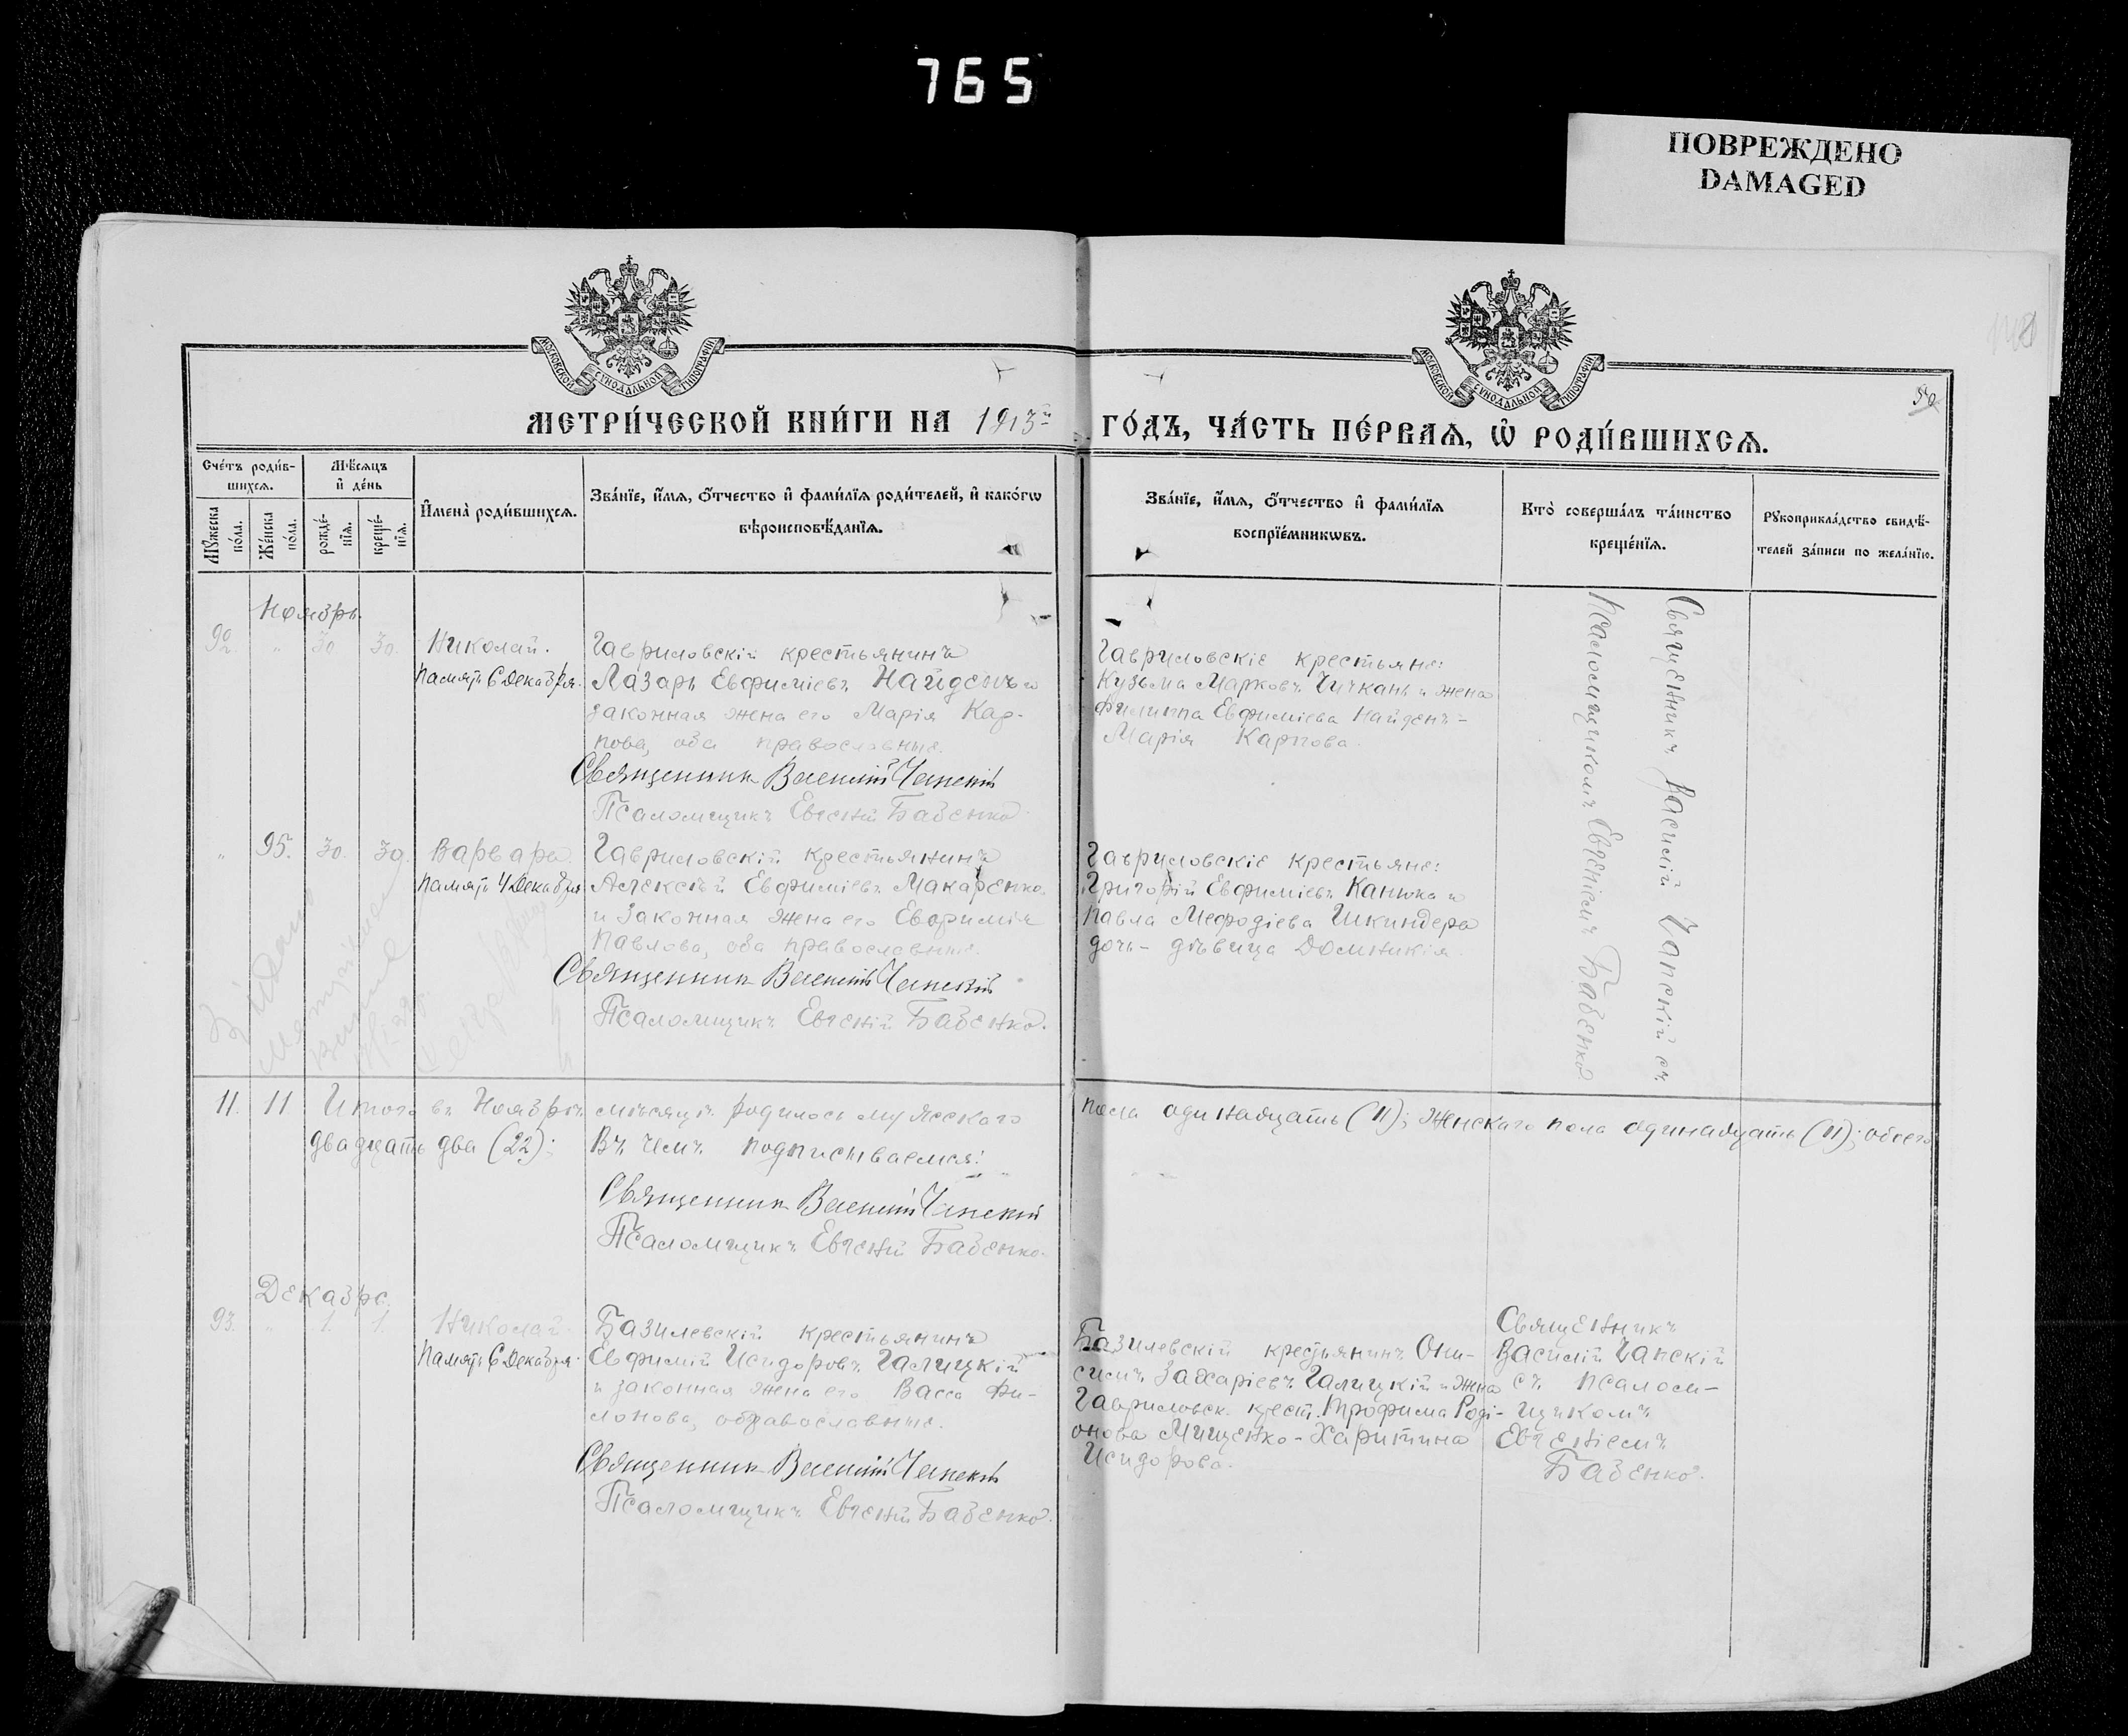 765
ПОВРЕЖДЕНО
DAMAGED
МОСКОВСКОЙ СѴНОДАЛЬНОЙ ТИПОГРАФІИ
МОСКОВСКОЙ СѴНОДАЛЬНОЙ ТИПОГРАФІИ
50
МЕТРИ́ЧЕСКОЙ КНИ́ГИ НА 1913й ГО́ДЪ, ЧА́СТЬ ПЕ́РВАѦ, Ѡ҆ РОДИ́ВШИХСѦ.
Сче́тъ роди́вшихсѧ.
Мѣ́сѧцъ и҆ де́нь
Мꙋ́жеска по́ла.
Же́нска по́ла.
рожде́нїѧ.
креще́нїѧ.
И҆мена̀ роди́вшихсѧ.
Зва́нїе, и҆́мѧ, ѻ҆́тчество и҆ фами́лїѧ роди́телей, и҆ како́гѡ
вѣроисповѣ́данїѧ.
Зва́нїе, и҆́мѧ, ѻ҆́тчество и҆ фами́лїѧ
воспрїе́мникѡвъ.
Кто̀ соверша́лъ та́инство
креще́нїѧ.
Рꙋкоприкла́дство свидѣ́-
телей за́писи по жела́нїю.
Ноябрь.
92. " 30. 30. Николай.
Память 6 Декабря.
Гавриловскій крестьянинъ
Лазарь Евфиміевъ Найденъ и
законная жена его Марія Кар-
пова, оба православные.
Священникъ Василій Чапскій
Псаломщикъ Евгеній Бабенко.
Гавриловскіе крестьяне:
Кузьма Марковъ Чичкань и жена
Филиппа Евфиміева Найденъ -
Марія Карпова.
Священникъ Василій Чапскій съ
Псаломщикомъ Евгеніемъ Бабенко
" 95. 30. 30. Варвара.
Память 4 Декабря
Гавриловскій крестьянинъ
Алексѣй Евфиміевъ Макаренко
и законная жена его Евфимія
Павлова, оба православные.
Священникъ Василій Чапскій
Псаломщикъ Евгеній Бабенко.
Гавриловскіе крестьяне:
Григорій Евфиміевъ Канюка и
Павла Мефодіева Шкиндера
дочь - дѣвица Домникія.
11. 11 Итого въ Ноябрѣ мѣсяцѣ родилось мужескаго пола одинадцать (11); женскаго пола одинадцать (11); обоего
двадцать два (22); Въ чемъ подписываемся:
Священникъ Василій Чапскій
Псаломщикъ Евгеній Бабенко.
Декабрь.
93. " 1. 1 Николай.
Память 6 Декабря.
Базилевскій крестьянинъ
Евфимій Исидоровъ Галицкій
и законная жена его Васса Фи-
лонова, оба православные.
Священникъ Василій Чапскій
Псаломщикъ Евгеній Бабенко.
Базилевскій крестьянинъ Они-
симъ Захаріевъ Галицкій и жена
Гавриловск. крест. Трофима Роді-
онова Мищенко - Харитина
Исидорова.
Священникъ
Василій Чапскій
съ псалом-
щикомъ
Евгеніемъ
Бабенко.